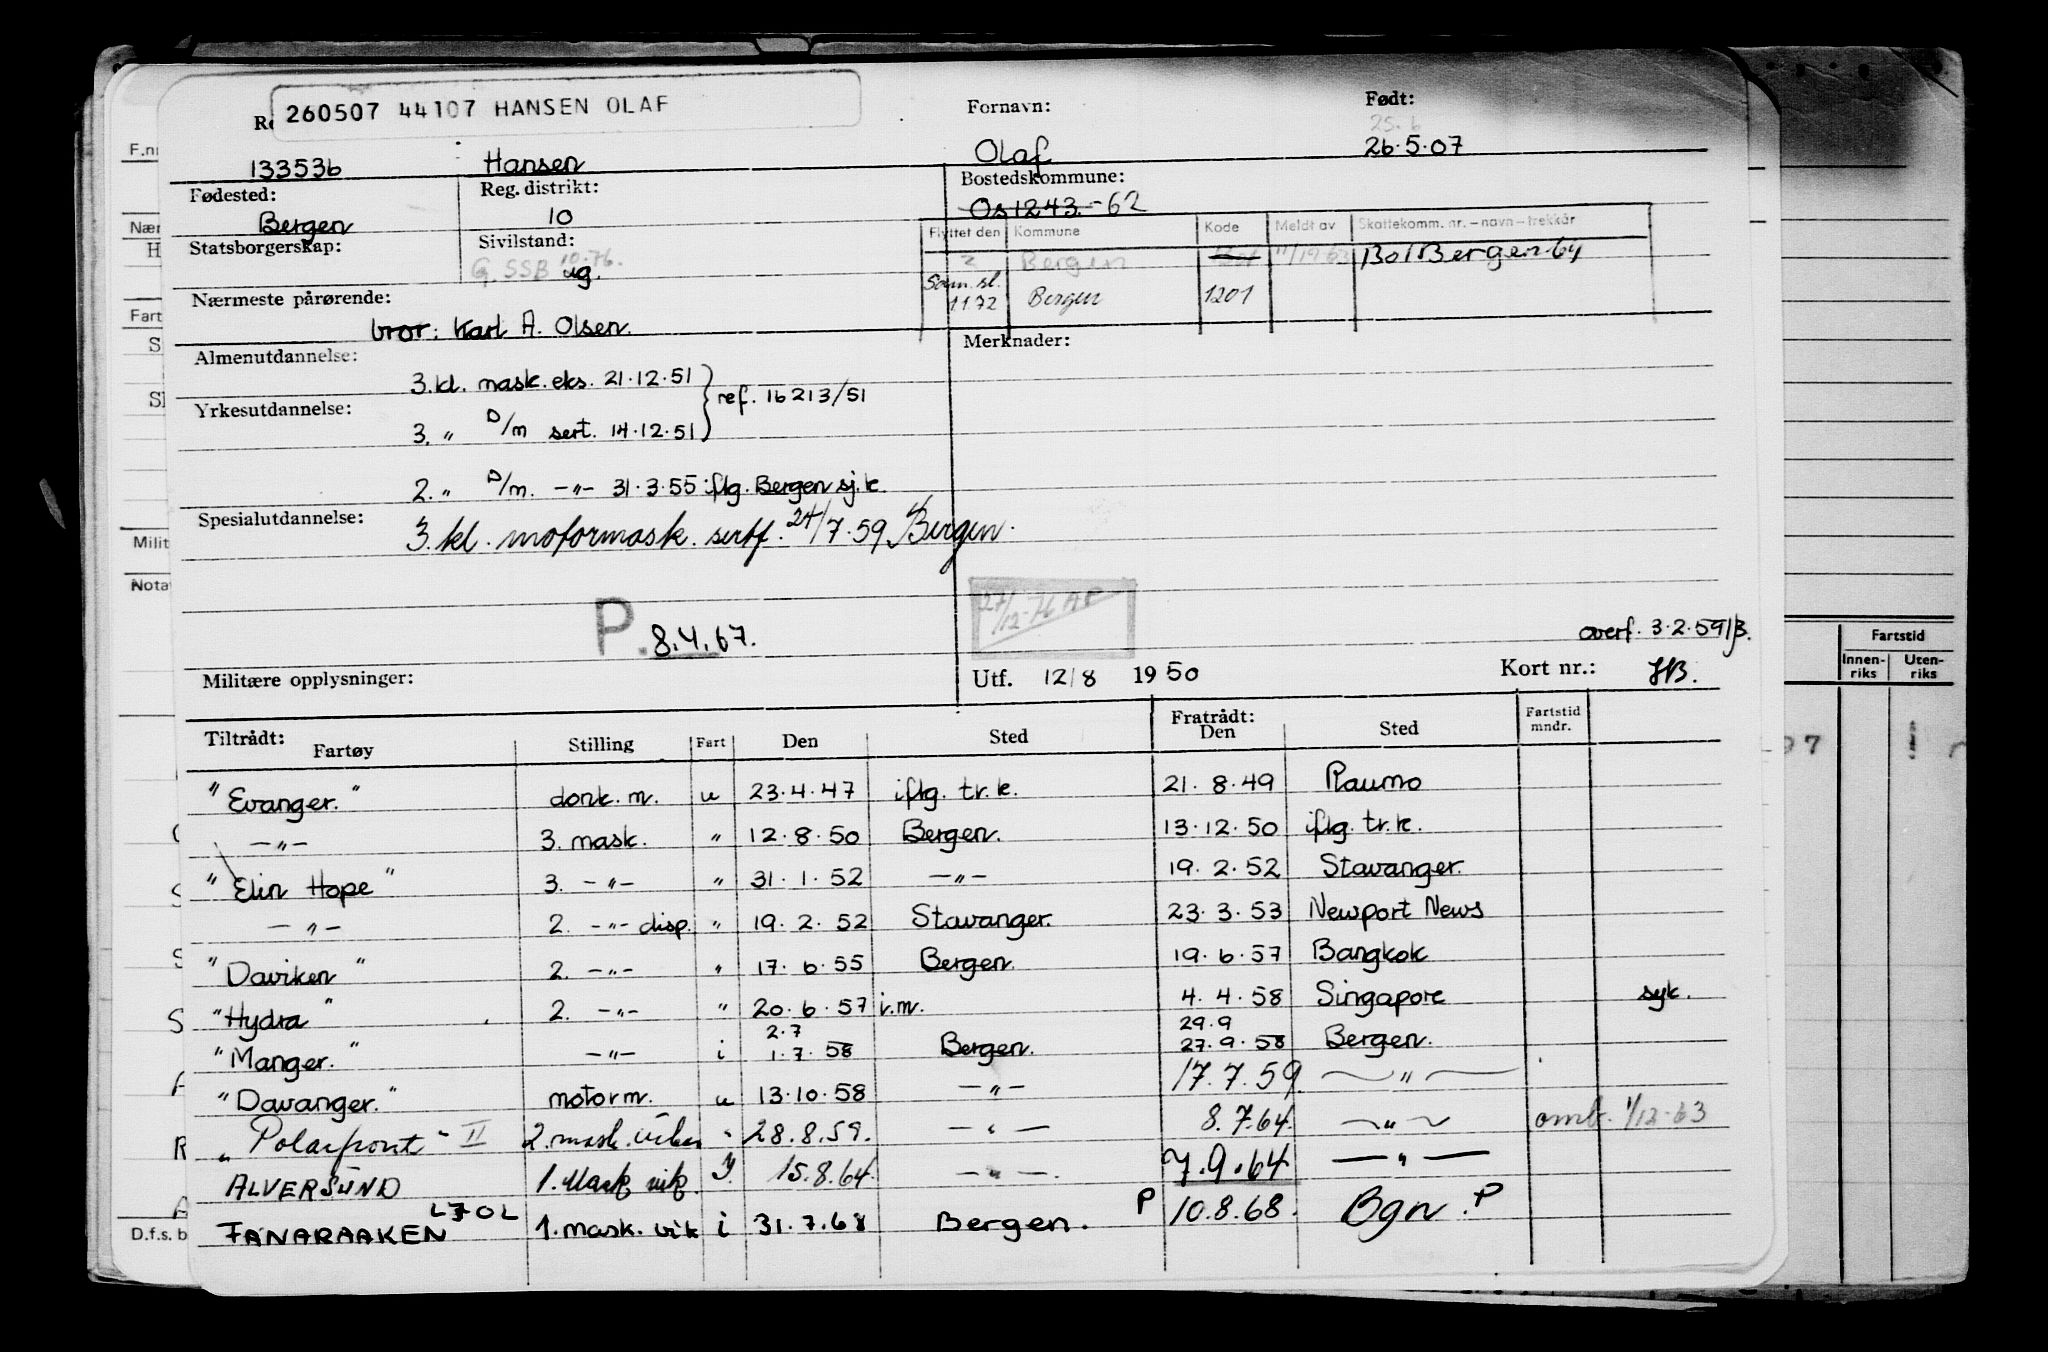 260507 44107 HANSEN OLAF
Fornavn:
Født:
25.6
133536 Hansen Olaf 26.5.07
F.nr
Fødested: Reg. distrikt: Bostedskommune:
Bergen 10 Os 1243.-62
Statsborgerskap: Sivilstand:
Flyttet den Kommune Kode Meldt av Skattekomm. nr. – navn – trekkår
G. SSB 10.76. ug.
2 Bergen 11/12 63 1301 Bergen 64
Sam. sl. 1172 Bergen 1201
Nærmeste pårørende:
bror: Karl A. Olsen.
Almenutdannelse: Merknader:
3. kl. mask. eks. 21.12.51
ref. 16213/51
Yrkesutdannelse:
3. " D/m sert. 14.12.51
2. " D/m. -"- 31.3.55 iflg. Bergen sj.k.
Spesialutdannelse:
3. kl. motormask. sertf. 24/7.59 Bergen.
27/12-76 AP
P. 8.4.67.
overf. 3.2.59/B.
Militære opplysninger: Utf. 12/8 1950 Kort nr.: HB.
Fartstid
Innenriks Utenriks
Tiltrådt: Fartøy Stilling Fart Den Sted Fratrådt: Den Sted Fartstid mndr.
"Evanger." donk. m. u 23.4.47 iflg. tr.k. 21.8.49 Raumo
-"- 3. mask. " 12.8.50 Bergen. 13.12.50 iflg. tr.k.
"Elin Hope" 3. -"- " 31.1.52 -"- 19.2.52 Stavanger.
-"- 2. -"- disp. " 19.2.52 Stavanger. 23.3.53 Newport News
"Daviken" 2. -"- " 17.6.55 Bergen. 19.6.57 Bangkok
"Hydra" 2. -"- " 20.6.57 i.m. 4.4.58 Singapore syk.
2.7 29.9
"Manger." -"- i 1.7.58 Bergen. 27.9.58 Bergen.
"Davanger." motorm. u 13.10.58 -"- 17.7.59. -"-
"Polarfront" II 2. mask. vikar " 28.8.59. -"- 8.7.64. -"- omb. 1/12-63
ALVERSUND 1. Mask vik. 15.8.64. -"- 7.9.64 -"-
LJOL
FANARAAKEN 1. mask. vik i 31.7.68 Bergen. P 10.8.68. Bgn. P
D.f.s. b